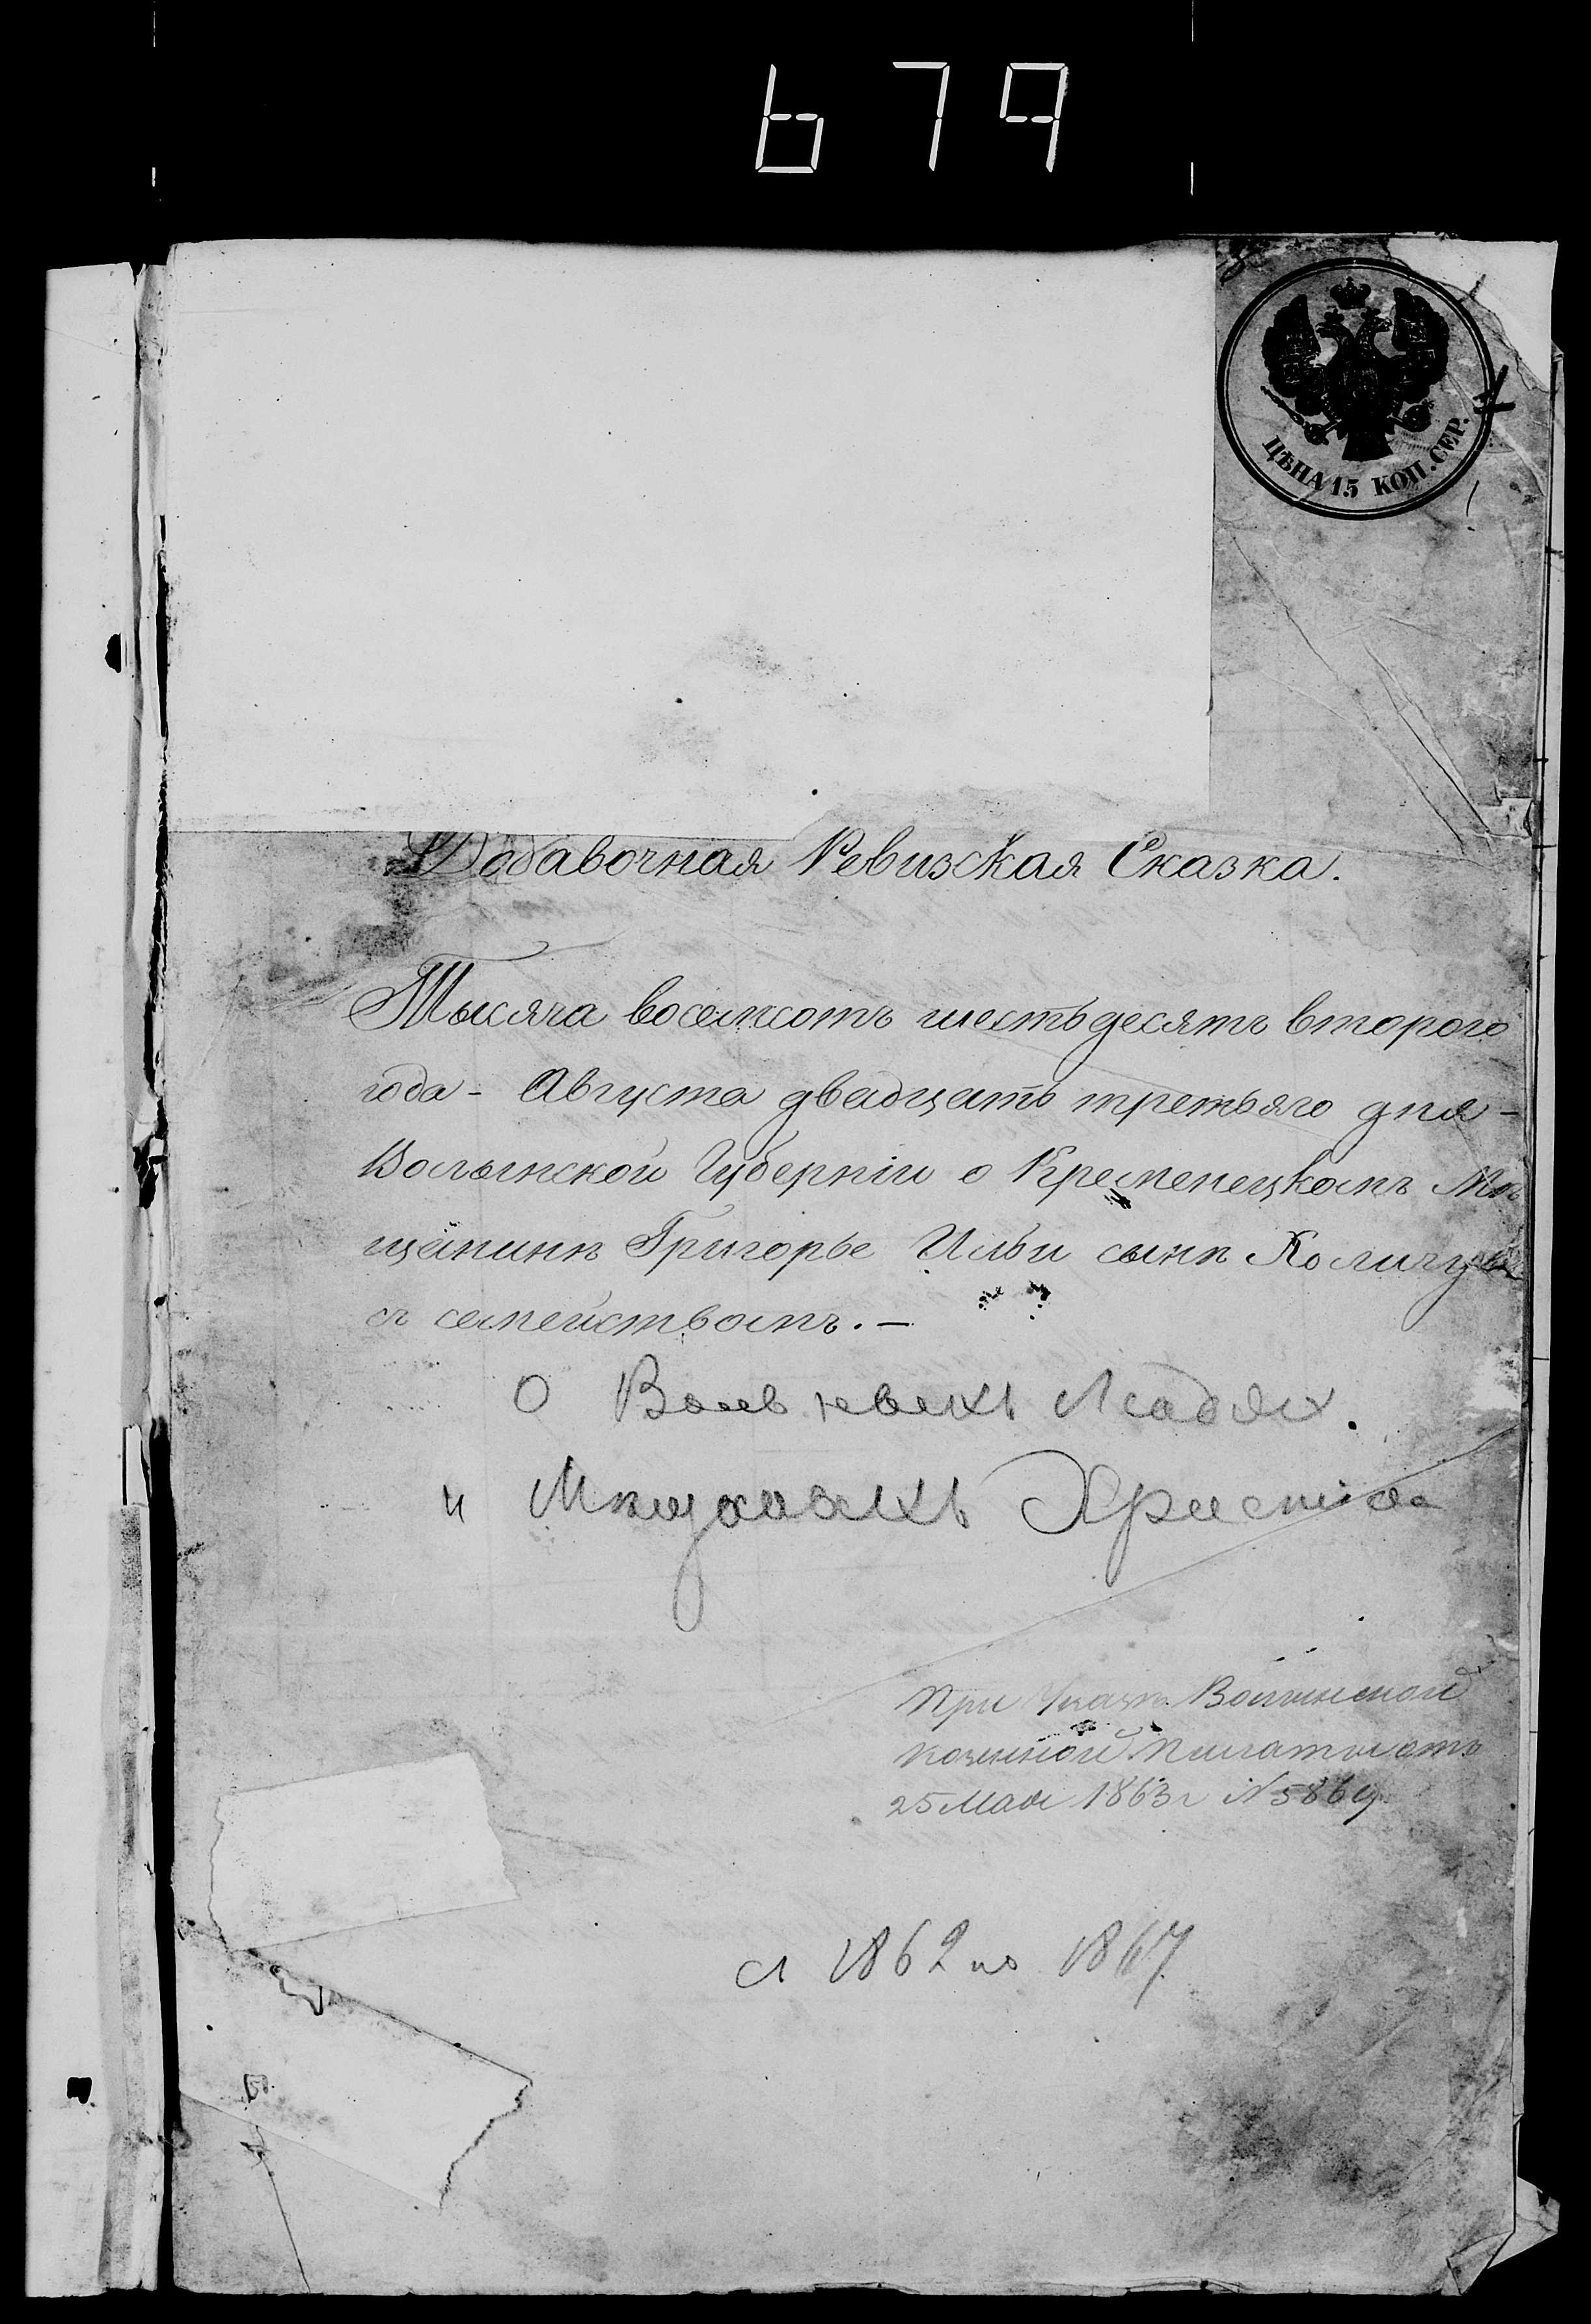 679
ЦѢНА 15 КОП. СЕР.
Добавочная Ревизская Сказка.
Тысяча восемсотъ шестьдесятъ второго
года - Августа двадцать третьяго дня -
Волынской Губерніи о Кременецкомъ Мѣ
щанинѣ Григорье Ильи сынѣ
съ семействомъ. -
О Вольныхъ Людях.
и Христіа
При Указѣ Волынской
Казенной Палаты отъ
25 Мая 1863 г N 5869
с 1862 по 1867